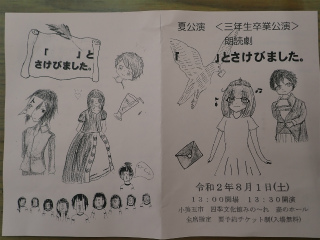 夏公演 <三年生卒業公演>
朗読劇
「　　　」とさけびました。
令和2年8月1日(土)
13:00開場 13:30開演
「　　　」と
さけびました。